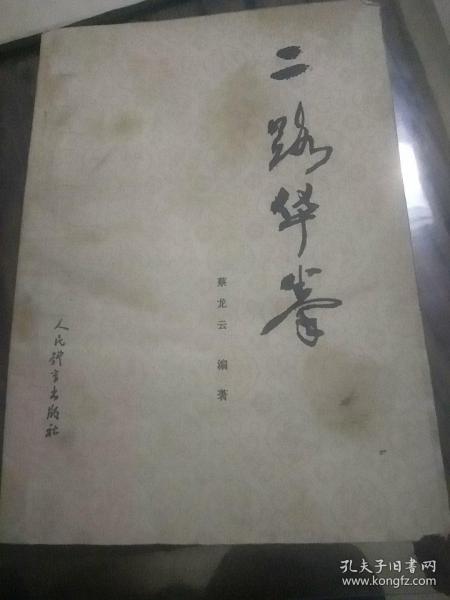 二路华拳
蔡龙云 编著
人民体育出版社
孔夫子旧书网
www.kongfz.com